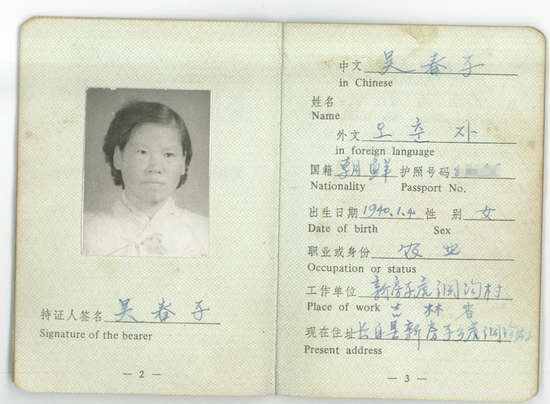 持证人签名 吴春子
Signature of the bearer
— 2 —
中文 吴春子
in Chinese
姓名
Name
外文 오춘자
in foreign language
国籍 朝鲜 护照号码
Nationality Passport No.
出生日期 1940.1.4. 性别 女
Date of birth Sex
职业或身份 农业
Occupation or status
工作单位 新房子虎洞沟村
Place of work 吉林省
现在住址 长白县新房子乡虎洞沟村
Present address
— 3 —